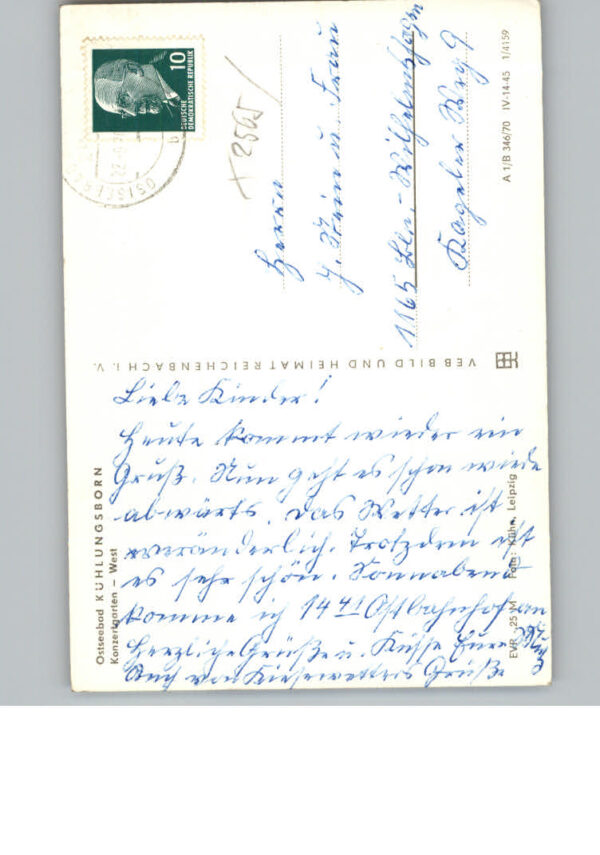 10
DEUTSCHE
DEMOKRATISCHE REPUBLIK
OSTSEEB
+ 2505 /
Herrn
u. Frau
1165 Bln.-Wilhelmshagen
Kageler Weg 9
A 1/B 346/70 IV-14-45 1/4159
VEB BILD UND HEIMAT REICHENBACH i. V.
Ostseebad KÜHLUNGSBORN
Konzertgarten – West
Liebe Kinder!
Heute kommt wieder ein
Gruß. Nun geht es schon wiede
abwärts. Das Wetter ist
veränderlich. Trotzdem ist
es sehr schön. Sonnabend
komme ich 14 41 Ostbahnhof an
Herzliche Grüße u. Küsse Eure
Auch von Kiesewetters Grüße
EVP -,25 M Foto: Kühn, Leipzig